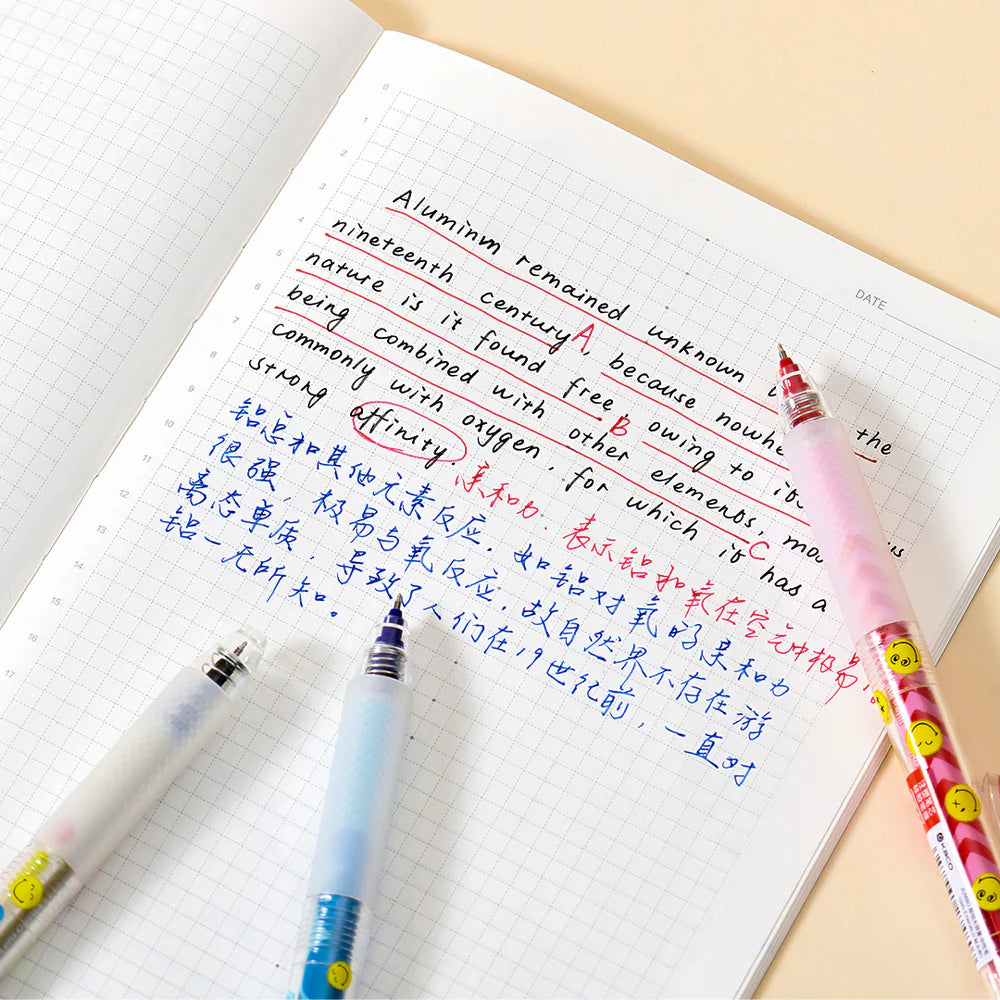 DATE
Aluminm remained unknown the
nineteenth century A, because nowhe
nature is it found free, B owing to its
being combined with other elements, C mo us
commonly with oxygen, for which it has a
strong affinity. 亲和力. 表示铝和氧在空气中极易
铝总和其他元素反应. 如铝对氧的亲和力
很强, 极易与氧反应, 故自然界不存在游
离态单质, 导致了人们在19世纪前, 一直对
铝一无所知。
0
1
2
3
4
5
6
7
8
9
10
11
12
13
14
15
16
17
kaco